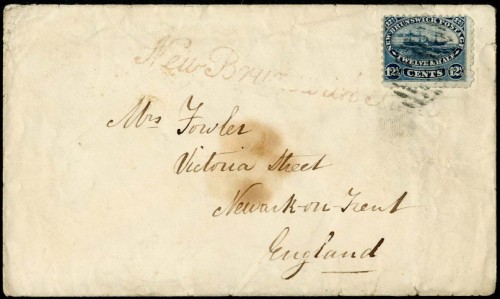 NEW BRUNSWICK POSTAGE
TWELVE & HALF
12½ CENTS 12½
New Brunswick
Mrs Fowler
Victoria Street
Newark-on-Trent
England